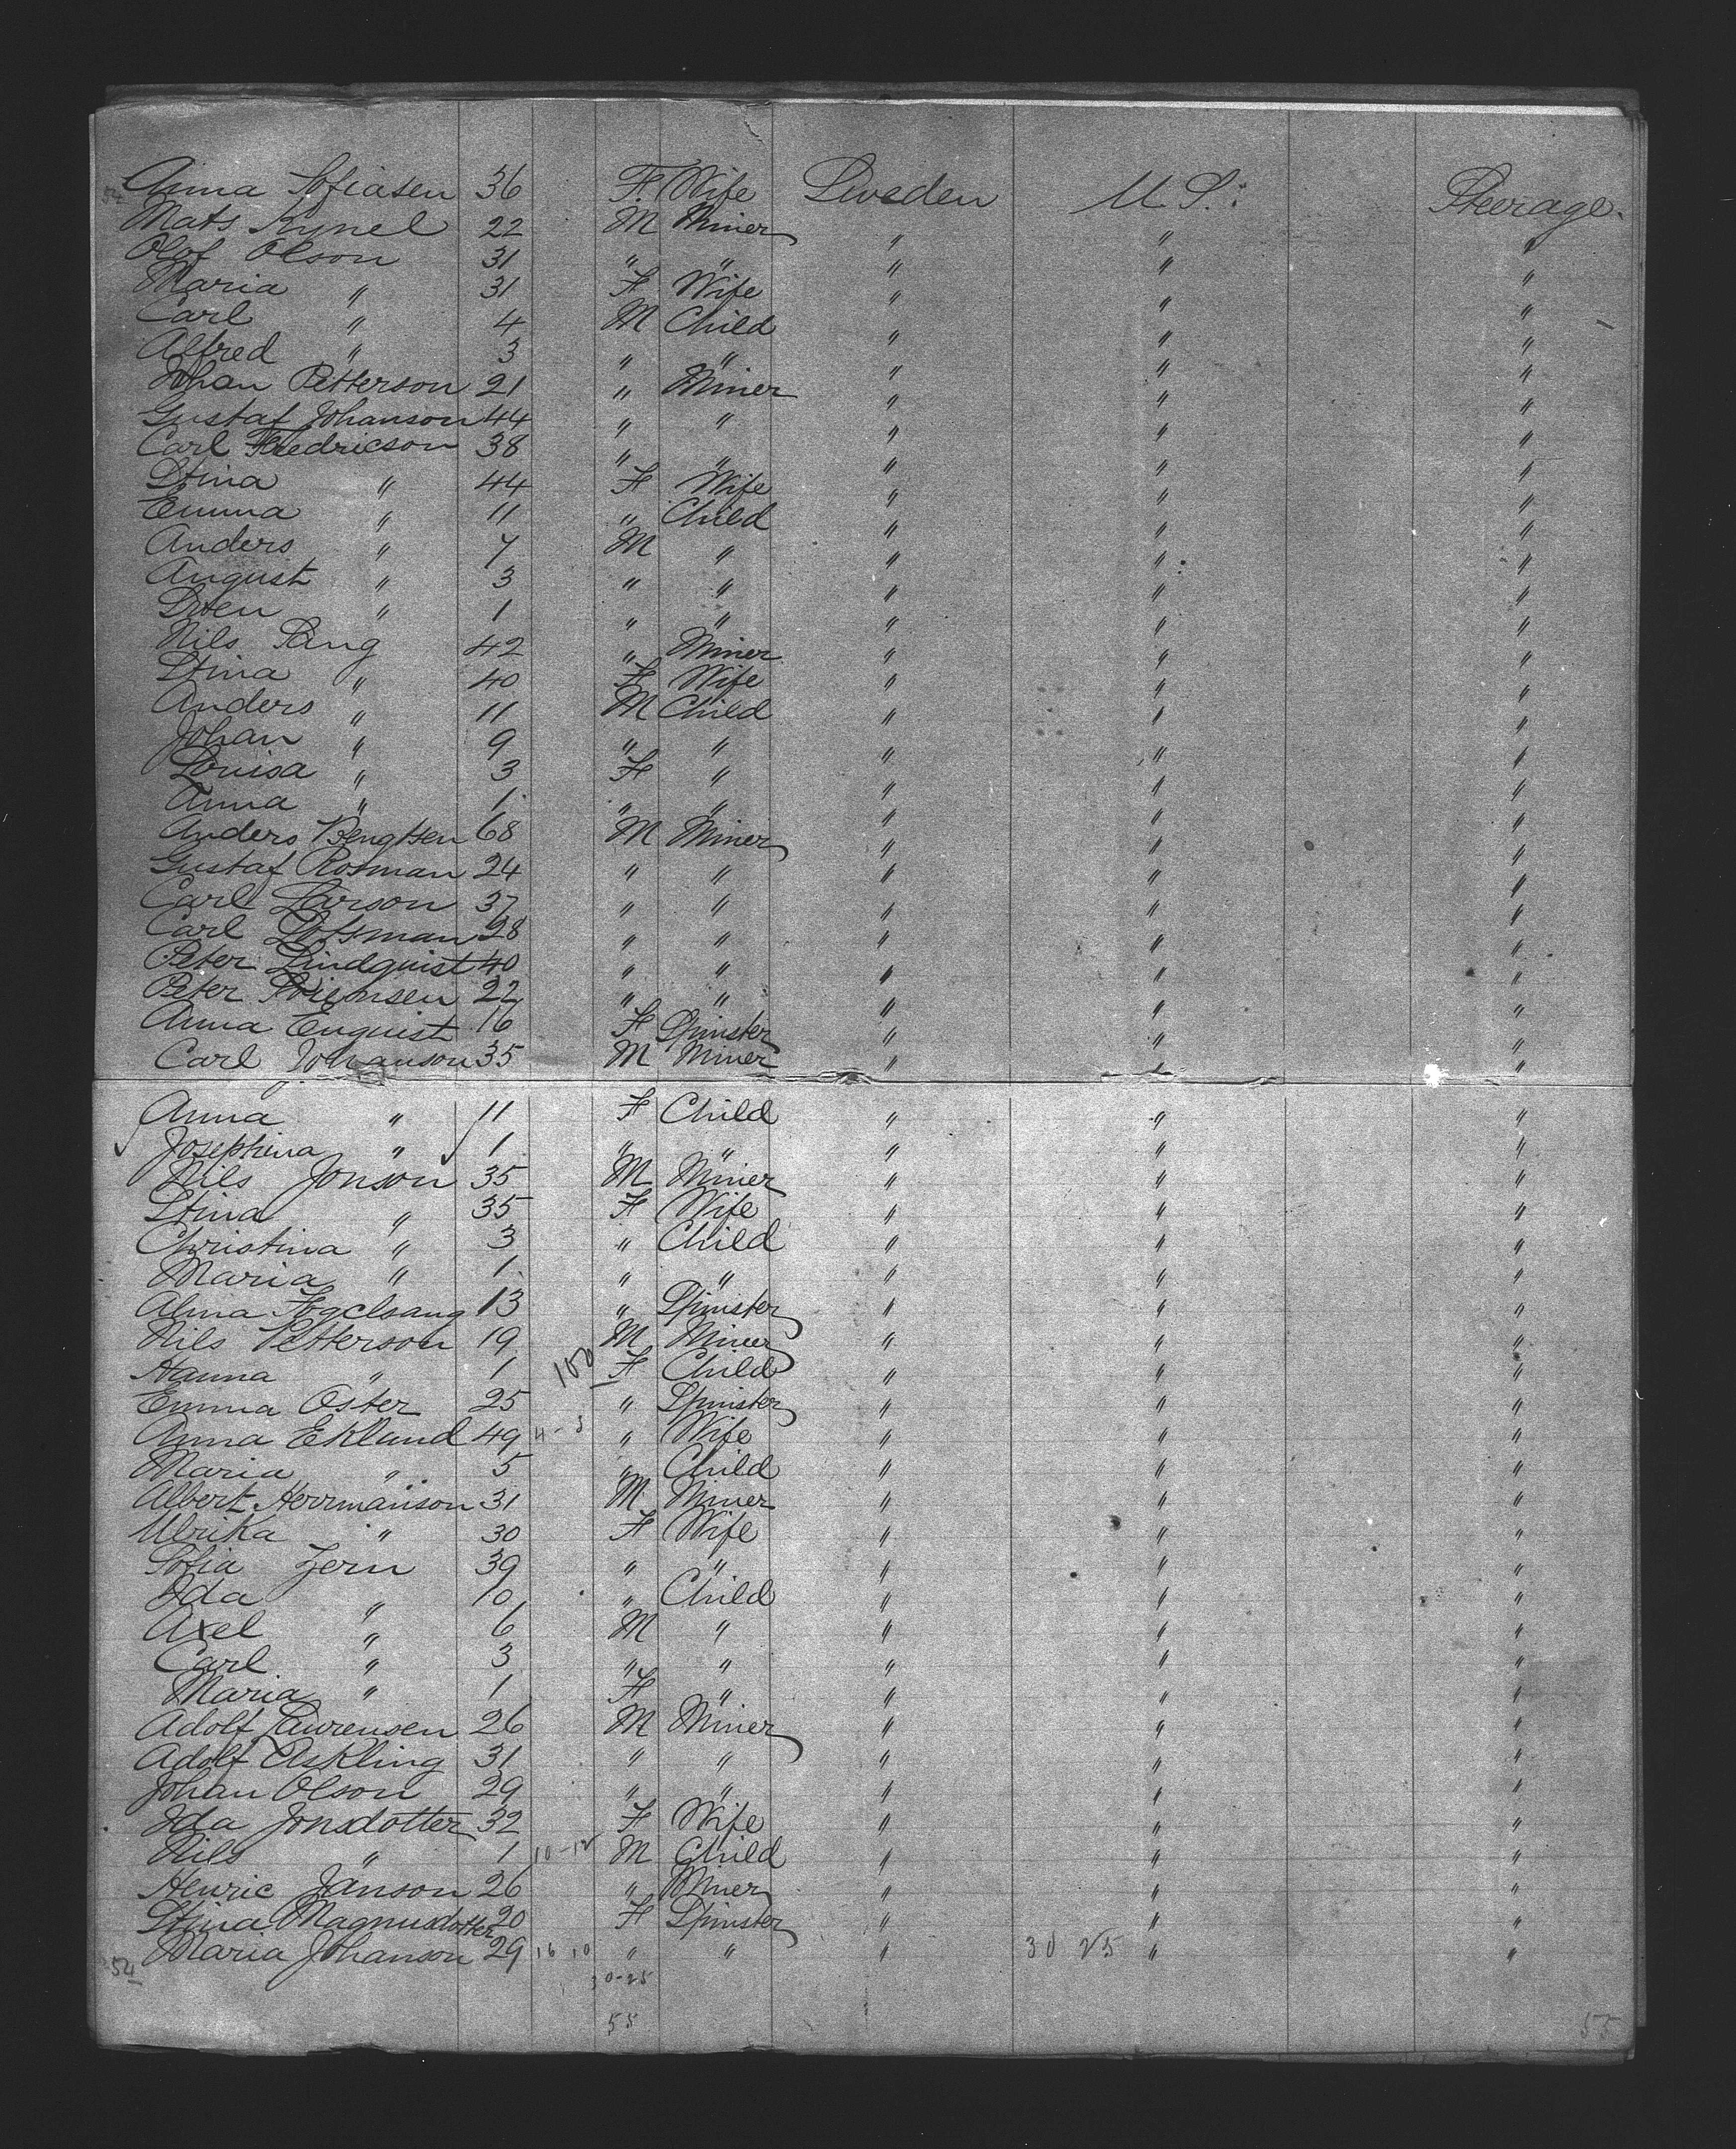 54 Anna Sofiasen 36 F. Wife Sweden U S.: Steerage.
Mats Kynel 22 M Miner " " "
Olof Olson 31 " " " " "
Maria " 31 F Wife " " "
Carl " 4 M Child " " "
Alfred " 3 " " " " "
Johan Petterson 21 " Miner " " "
Gustaf Johanson 44 " " " " "
Carl Fredricson 38 " " " " "
Stina " 44 F Wife " " "
Emma " 11 " Child " " "
Anders " 7 M " " " "
August " 3 " " " " "
Sven " 1 " " " " "
Nils Sang 42 " Miner " " "
Stina " 40 F Wife " " "
Anders " 11 M Child " " "
Johan " 9 " " " " "
Lovisa " 3 F " " " "
Anna " 1 " " " " "
Anders Bengtsen 68 M Miner " " "
Gustaf Rosman 24 " " " " "
Carl Larson 37 " " " " "
Carl Lotsman 28 " " " " "
Peter Lindquist 40 " " " " "
Peter 22 " " " " "
Anna Enquist 16 F Spinster " " "
Carl Johanson 35 M Miner " " "
Anna " 11 F Child " " "
Josephina " 1 " " " " "
Nils Jonson 35 M Miner " " "
Stina " 35 F Wife " " "
Christina " 3 " Child " " "
Maria " 1 " " " " "
Alma Fogelsang 13 " Spinster " " "
Nils Petterson 19 M Miner " " "
Hanna " 1 100 F Child " " "
Emma Oster 25 " Spinster " " "
Anna Eklund 49 " Wife " " "
Maria " 5 " Child " " "
Albert Herrmanson 31 M Miner " " "
Ulrika " 30 F Wife " " "
Sofia Zern 39 " " " " "
Ida " 10 " Child " " "
Axel " 6 M " " " "
Carl " 3 " " " " "
Maria " 1 F " " " "
Adolf Laurensen 26 M Miner " " "
Adolf Askling 31 " " " " "
Johan Olson 29 " " " " "
Ida Jonsdotter 32 F Wife " " "
Nils " 1 M Child " " "
Henric Janson 26 " Miner " " "
Stina Magnusdotter 20 F Spinster " " "
Maria Johanson 29 16 10 " " " 30 25 " "
54 30-25
55 55